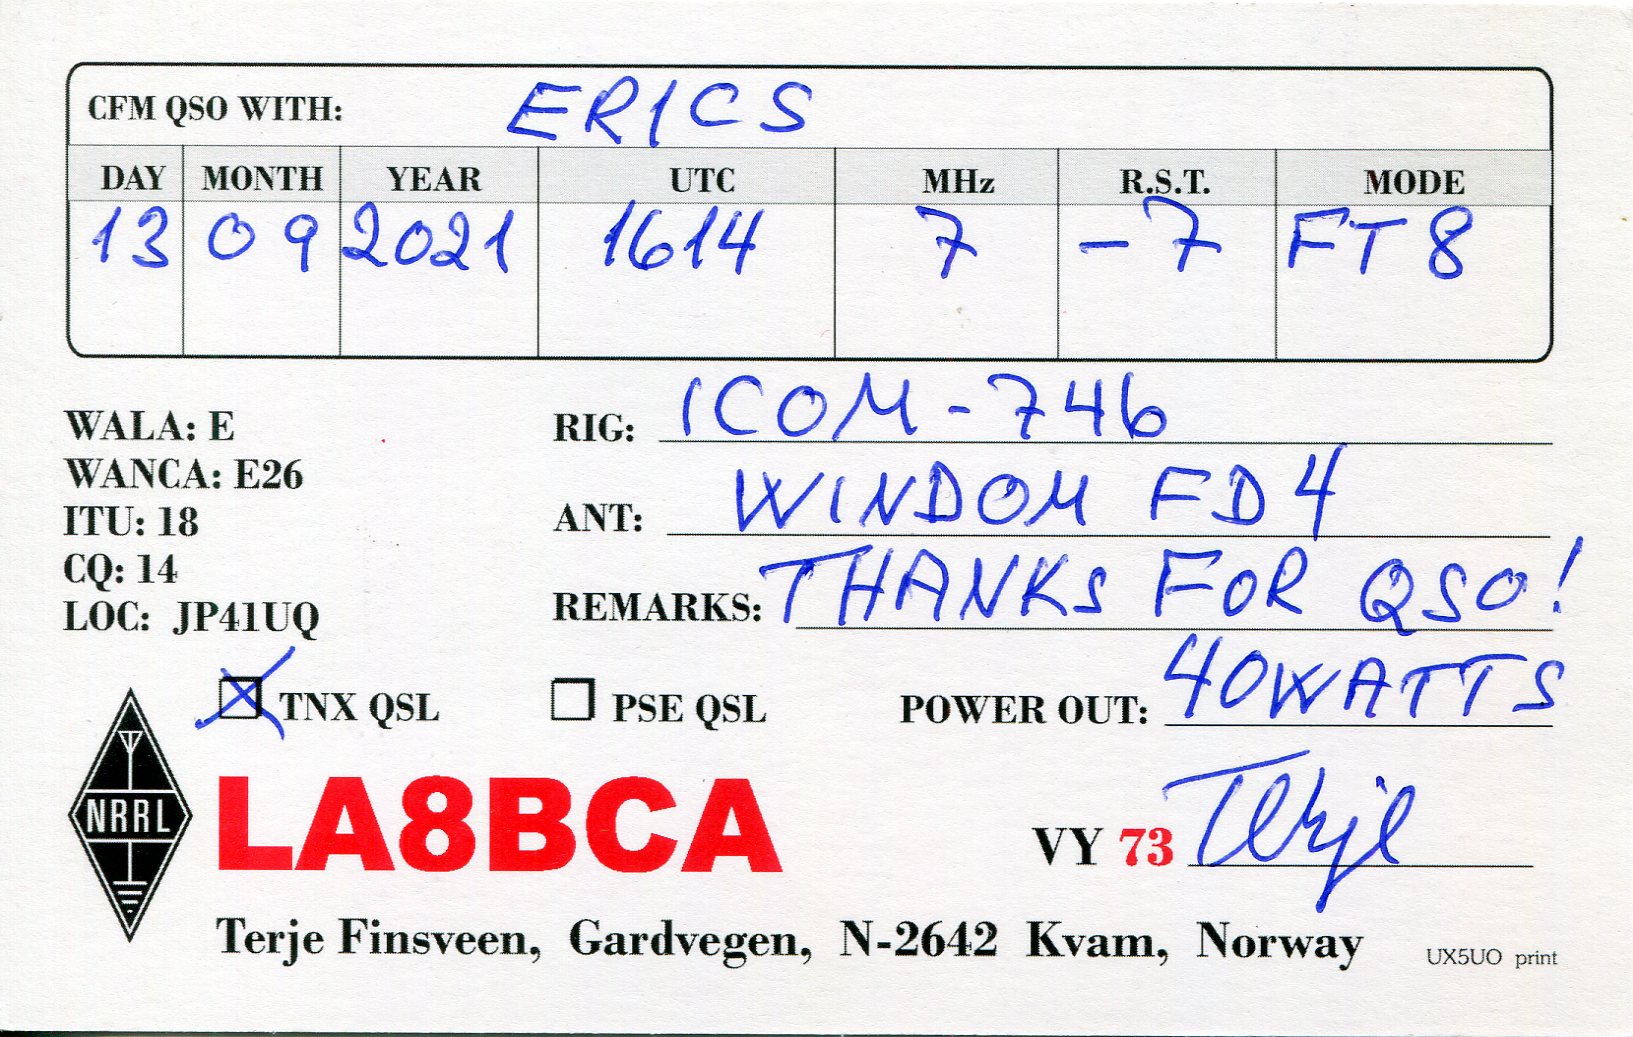 CFM QSO WITH: ER1CS
DAY MONTH YEAR UTC MHz R.S.T. MODE
13 09 2021 1614 7 -7 FT8
WALA: E
WANCA: E26
ITU: 18
CQ: 14
LOC: JP41UQ
RIG: ICOM-746
ANT: WINDOM FD4
REMARKS: THANKS FOR QSO!
TNX QSL PSE QSL POWER OUT: 40WATTS
NRRL
LA8BCA
VY 73 Terje
Terje Finsveen, Gardvegen, N-2642 Kvam, Norway
UX5UO print